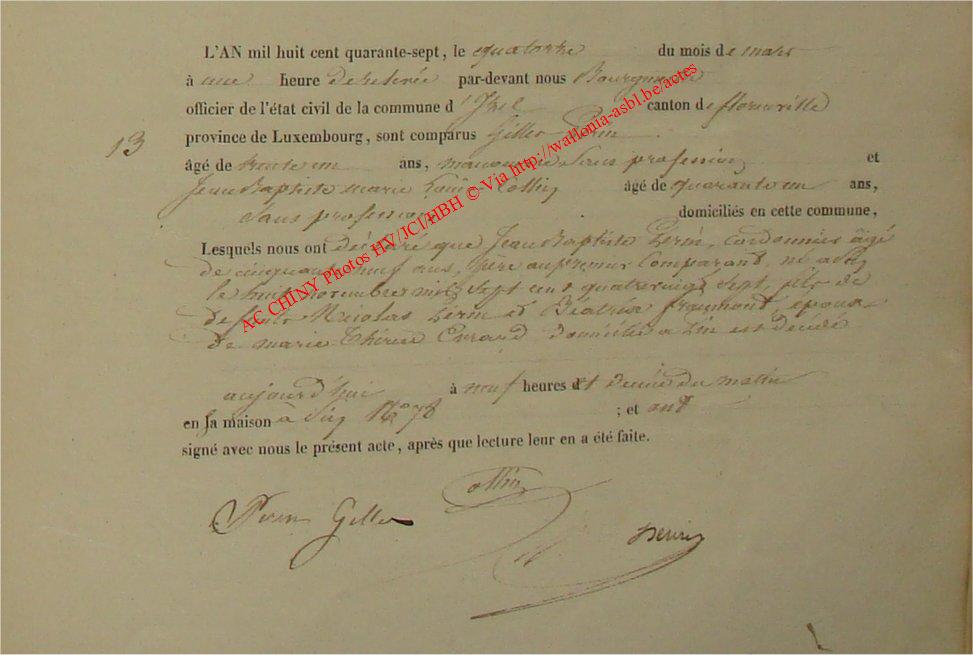 L'AN mil huit cent quarante-sept, le quatorze du mois de mars
à une heure de relevée par-devant nous Bourgmestre
officier de l'état civil de la commune d'Izel canton de florenville
province de Luxembourg, sont comparus Gilles
13
âgé de trente un ans, sans profession et
Jean Baptiste marie Louis Collin âgé de quarante un ans,
sans profession domiciliés en cette commune,
Lesquels nous ont déclaré que Jean Baptiste cordonnier âgé
de cinquante neuf ans, père au premier Comparant, né
le huit novembre mil sept cent quatrevingt sept, fils de
defunts Nicolas et Béatrix epoux
de marie Thérèse domicilié à est décédé
aujourd'hui à neuf heures et demie du matin
en sa maison à N° 78 ; et ont
signé avec nous le présent acte, après que lecture leur en a été faite.
Collin
Gilles
henri
AC CHINY Photos HV/JCI/HBH © Via http://wallonia-asbl.be/actes